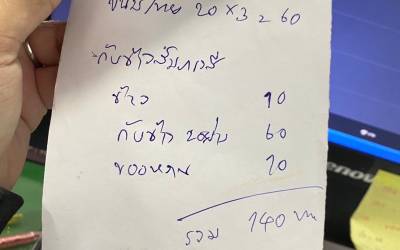 20 × 3 = 60
กับข้าวสัมภเวสี
ข้าว 10
กับข้าว 2อย่าง 60
ของหวาน 10
รวม 140 บาท
enovo